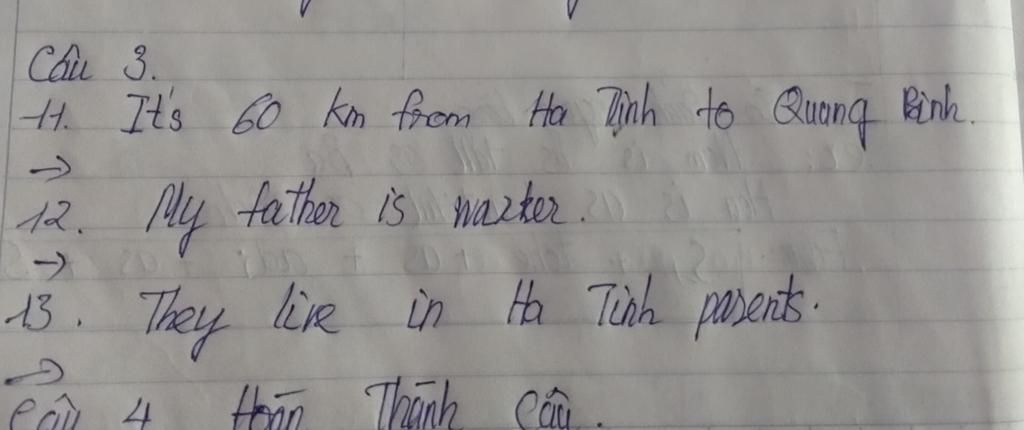 Câu 3.
11. It's 60 km from Ha Tinh to Quang Binh.
→
12. My father is warker.
→
13. They live in Ha Tinh parents.
→
Câu 4 Hoàn Thành Câu.